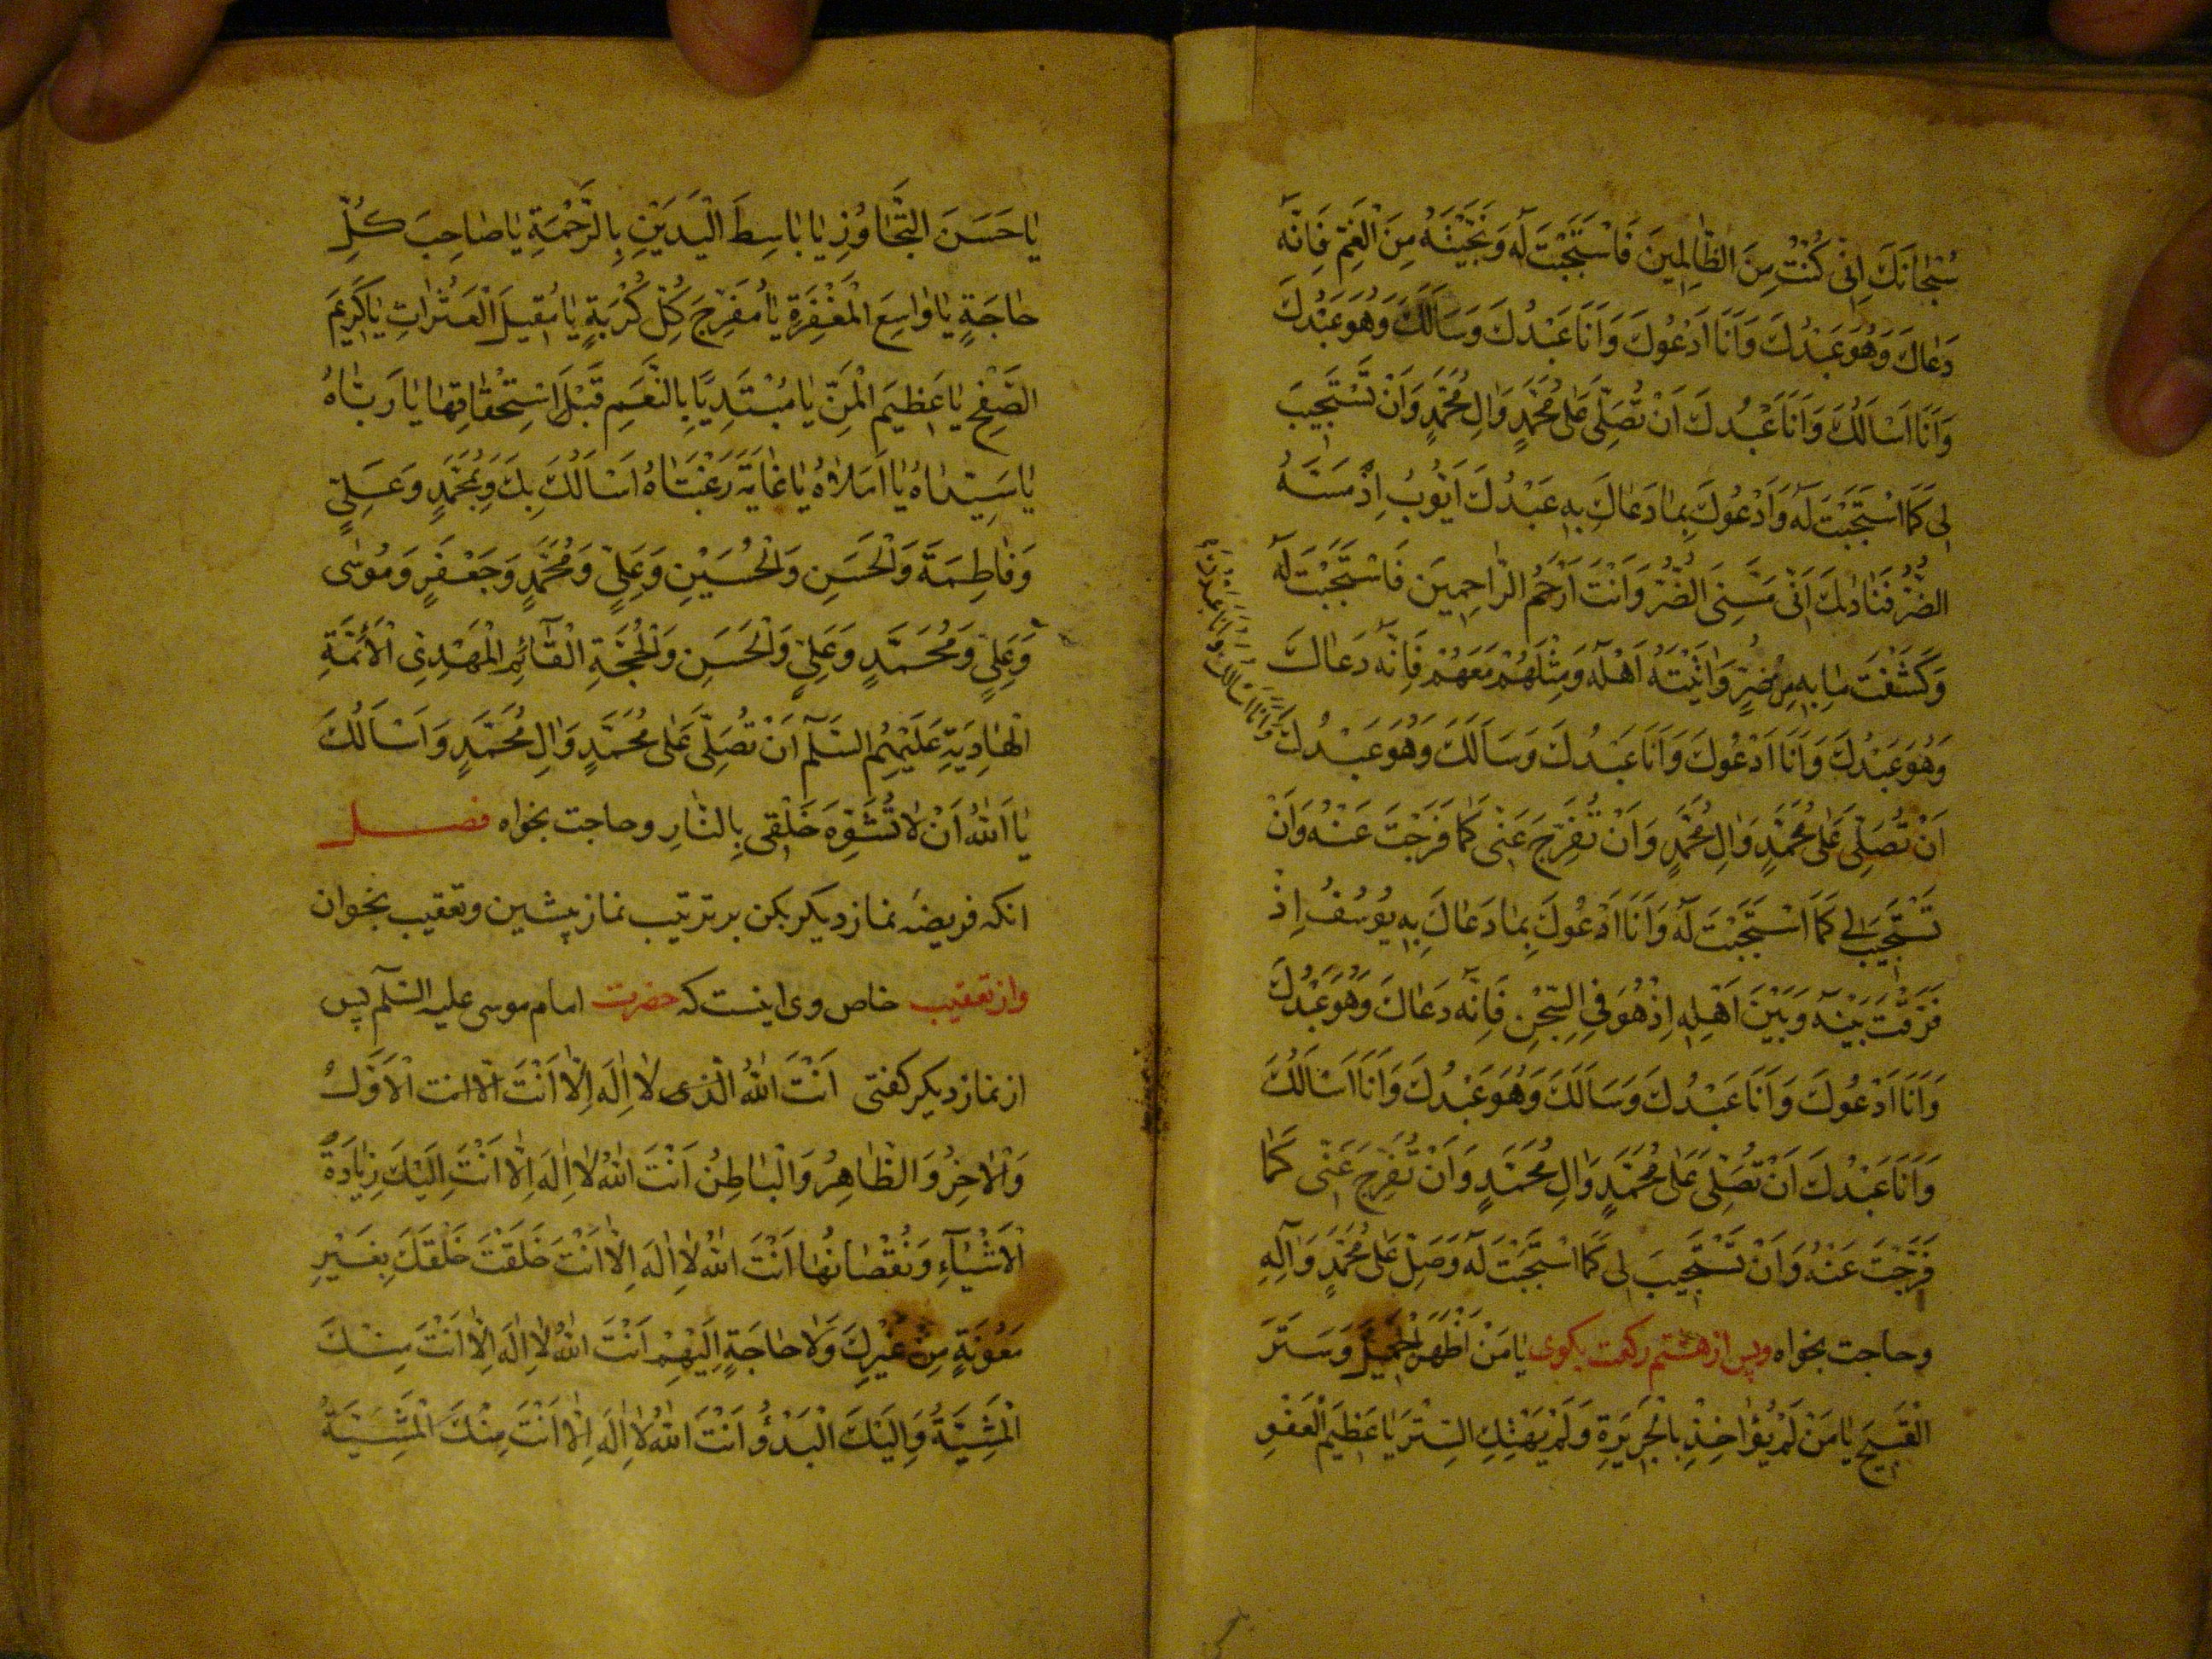 سُبْحٰانَكَ اِنّٖى كُنْتُ مِنَ الظّٰالِمٖينَ فَاسْتَجَبْتَ لَهُ وَنَجَّيْتَهُ مِنَ الْغَمِّ فَاِنَّهُ
دَعٰاكَ وَهُوَ عَبْدُكَ وَاَنَا اَدْعُوكَ وَاَنَا عَبْدُكَ وَسَاَلَكَ وَهُوَ عَبْدُكَ
وَاَنَا اَسْاَلُكَ وَاَنَا عَبْدُكَ اَنْ تُصَلِّىَ عَلٰى مُحَمَّدٍ وَاٰلِ مُحَمَّدٍ وَاَنْ تَسْتَجٖيبَ
لٖى كَمَا اسْتَجَبْتَ لَهُ وَاَدْعُوكَ بِمٰا دَعٰاكَ بِهٖ عَبْدُكَ اَيُّوبُ اِذْ مَسَّهُ
الضُّرُّ فَنٰادٰكَ اَنّٖى مَسَّنِىَ الضُّرُّ وَاَنْتَ اَرْحَمُ الرّٰاحِمٖينَ فَاسْتَجَبْتَ لَهُ
وَكَشَفْتَ مٰا بِهٖ مِنْ ضُرٍّ وَاٰتَيْتَهُ اَهْلَهُ وَمِثْلَهُمْ مَعَهُمْ فَاِنَّهُ دَعٰاكَ
وَهُوَ عَبْدُكَ وَاَنَا اَدْعُوكَ وَاَنَا عَبْدُكَ وَسَاَلَكَ وَهُوَ عَبْدُكَ
وَاَنَا اَسْاَلُكَ وَاَنَا عَبْدُكَ
اَنْ تُصَلِّىَ عَلٰى مُحَمَّدٍ وَاٰلِ مُحَمَّدٍ وَاَنْ تُفَرِّجَ عَنّٖى كَمٰا فَرَّجْتَ عَنْهُ وَاَنْ
تَسْتَجٖيبَ لٖى كَمَا اسْتَجَبْتَ لَهُ وَاَنَا اَدْعُوكَ بِمٰا دَعٰاكَ بِهٖ يُوسُفُ اِذْ
فَرَّقْتَ بَيْنَهُ وَبَيْنَ اَهْلِهٖ اِذْ هُوَ فِى السِّجْنِ فَاِنَّهُ دَعٰاكَ وَهُوَ عَبْدُكَ
وَاَنَا اَدْعُوكَ وَاَنَا عَبْدُكَ وَسَاَلَكَ وَهُوَ عَبْدُكَ وَاَنَا اَسْاَلُكَ
وَاَنَا عَبْدُكَ اَنْ تُصَلِّىَ عَلٰى مُحَمَّدٍ وَاٰلِ مُحَمَّدٍ وَاَنْ تُفَرِّجَ عَنّٖى كَمٰا
فَرَّجْتَ عَنْهُ وَاَنْ تَسْتَجٖيبَ لٖى كَمَا اسْتَجَبْتَ لَهُ وَصَلِّ عَلٰى مُحَمَّدٍ وَاٰلِهٖ
وحاجت بخواه وپس از هشتم ركعت بكوى يٰا مَنْ اَظْهَرَ الْجَمٖيلَ وَسَتَرَ
الْقَبٖيحَ يٰا مَنْ لَمْ يُؤٰاخِذْ بِالْجَرٖيرَةِ وَلَمْ يَهْتِكِ السِّتْرَ يٰا عَظٖيمَ الْعَفْوِ
يٰا حَسَنَ التَّجٰاوُزِ يٰا بٰاسِطَ الْيَدَيْنِ بِالرَّحْمَةِ يٰا صٰاحِبَ كُلِّ
حٰاجَةٍ يٰا وٰاسِعَ الْمَغْفِرَةِ يٰا مُفَرِّجَ كُلِّ كُرْبَةٍ يٰا مُقٖيلَ الْعَثَرٰاتِ يٰا كَرٖيمَ
الصَّفْحِ يٰا عَظٖيمَ الْمَنِّ يٰا مُبْتَدِيًا بِالنِّعَمِ قَبْلَ اسْتِحْقٰاقِهٰا يٰا رَبّٰاهُ
يٰا سَيِّدٰاهُ يٰا اَمَلاٰهُ يٰا غٰايَةَ رَغْبَتٰاهُ اَسْاَلُكَ بِكَ وَبِمُحَمَّدٍ وَعَلِىٍّ
وَفٰاطِمَةَ وَالْحَسَنِ وَالْحُسَيْنِ وَعَلِىٍّ وَمُحَمَّدٍ وَجَعْفَرٍ وَمُوسٰى
وَعَلِىٍّ وَمُحَمَّدٍ وَعَلِىٍّ وَالْحَسَنِ وَالْحُجَّةِ الْقٰائِمِ الْمَهْدِىِّ الْاَئِمَّةِ
الْهٰادِيَةِ عَلَيْهِمُ السَّلٰم اَنْ تُصَلِّىَ عَلٰى مُحَمَّدٍ وَاٰلِ مُحَمَّدٍ وَاَسْاَلُكَ
يٰا اَللّٰهُ اَنْ لاٰ تُشَوِّهَ خَلْقٖى بِالنّٰارِ وحاجت بخواه فصل
انكه فريضهٔ نماز ديكر بكن بر ترتيب نماز پيشين وتعقيب بخوان
واز تعقيب خاص وى اينست كه حضرت امام موسى عليه السّلٰم پس
از نماز ديكر كفتى اَنْتَ اللّٰهُ الَّذٖى لاٰ اِلٰهَ اِلاّٰ اَنْتَ الّا انت الْاَوَّلُ
وَالْاٰخِرُ وَالظّٰاهِرُ وَالْبٰاطِنُ اَنْتَ اللّٰهُ لاٰ اِلٰهَ اِلاّٰ اَنْتَ اِلَيْكَ زِيٰادَةُ
الْاَشْيٰآءِ وَنُقْصٰانُهٰا اَنْتَ اللّٰهُ لاٰ اِلٰهَ اِلاّٰ اَنْتَ خَلَقْتَ خَلْقَكَ بِغَيْرِ
مَعُونَةٍ مِنْ غَيْرِكَ وَلاٰ حٰاجَةٍ اِلَيْهِمْ اَنْتَ اللّٰهُ لاٰ اِلٰهَ اِلاّٰ اَنْتَ مِنْكَ
الْمَشِيَّةُ وَاِلَيْكَ الْبَدْؤُ اَنْتَ اللّٰهُ لاٰ اِلٰهَ اِلاّٰ اَنْتَ مِنْكَ الْمَشِيَّةُ